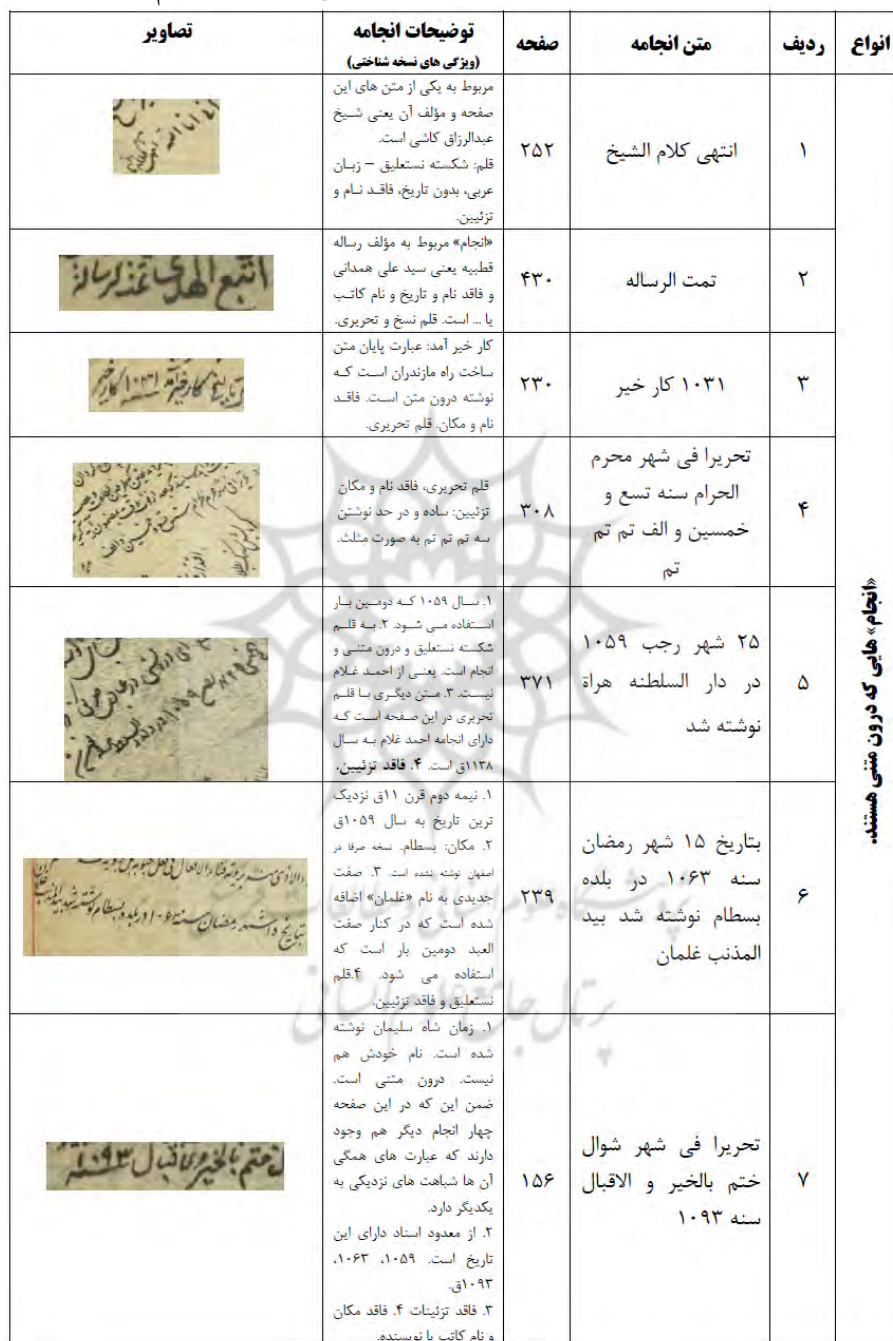 انواع
ردیف
متن انجامه
صفحه
توضیحات انجامه
(ویژگی های نسخه شناختی)
تصاویر
«انجام» هایی که درون متنی هستند.
۱
انتهی کلام الشیخ
۲۵۲
مربوط به یکی از متن های این
صفحه و مؤلف آن یعنی شیخ
عبدالرزاق کاشی است.
قلم: شکسته نستعلیق – زبان
عربی، بدون تاریخ، فاقد نام و
تزئیین.
۲
تمت الرساله
۴۳۰
«انجام» مربوط به مؤلف رساله
قطبیه یعنی سید علی همدانی
و فاقد نام و تاریخ و نام کاتب
یا ... است. قلم نسخ و تحریری.
اتبع الهدی تمت الرسالة
۳
۱۰۳۱ کار خیر
۲۳۰
کار خیر آمد: عبارت پایان متن
ساخت راه مازندران است که
نوشته درون متن است. فاقد
نام و مکان. قلم تحریری.
تاریخ کار خیر آمد ۱۰۳۱ کار خیر
۴
تحریرا فی شهر محرم
الحرام سنه تسع و
خمسین و الف تم تم
تم
۳۰۸
قلم تحریری، فاقد نام و مکان
تزئیین: ساده و در حد نوشتن
سه تم تم تم به صورت مثلث.
۵
۲۵ شهر رجب ۱۰۵۹
در دار السلطنه هراة
نوشته شد
۳۷۱
۱. سال ۱۰۵۹ که دومین بار
استفاده می شود. ۲. به قلم
شکسته نستعلیق و درون متنی و
انجام است. یعنی از احمد غلام
نیست. ۳. متن دیگری با قلم
تحریری در این صفحه است که
دارای انجامه احمد غلام به سال
۱۱۳۸ق است. ۴. فاقد تزئیین.
۶
بتاریخ ۱۵ شهر رمضان
سنه ۱۰۶۳ در بلده
بسطام نوشته شد بید
المذنب غلمان
۲۳۹
۱. نیمه دوم قرن ۱۱ق نزدیک
ترین تاریخ به سال ۱۰۵۹ق
۲. مکان: بسطام. نسخه صرفا در
اصفهان نوشته نشده است. ۳. صفت
جدیدی به نام «غلمان» اضافه
شده است که در کنار صفت
العبد دومین بار است که
استفاده می شود. ۴.قلم
نستعلیق و فاقد تزئیین.
۷
تحریرا فی شهر شوال
ختم بالخیر و الاقبال
سنه ۱۰۹۳
۱۵۶
۱. زمان شاه سلیمان نوشته
شده است. نام خودش هم
نیست. درون متنی است.
ضمن این که در این صفحه
چهار انجام دیگر هم وجود
دارند که عبارت های همگی
آن ها شباهت های نزدیکی به
یکدیگر دارد.
۲. از معدود اسناد دارای این
تاریخ است. ۱۰۵۹، ۱۰۶۳،
۱۰۹۳ق.
۳. فاقد تزئینات ۴. فاقد مکان
و نام کاتب یا نویسنده.
ختم بالخیر و الاقبال ۱۰۹۳
پرتال جامع علوم انسانی